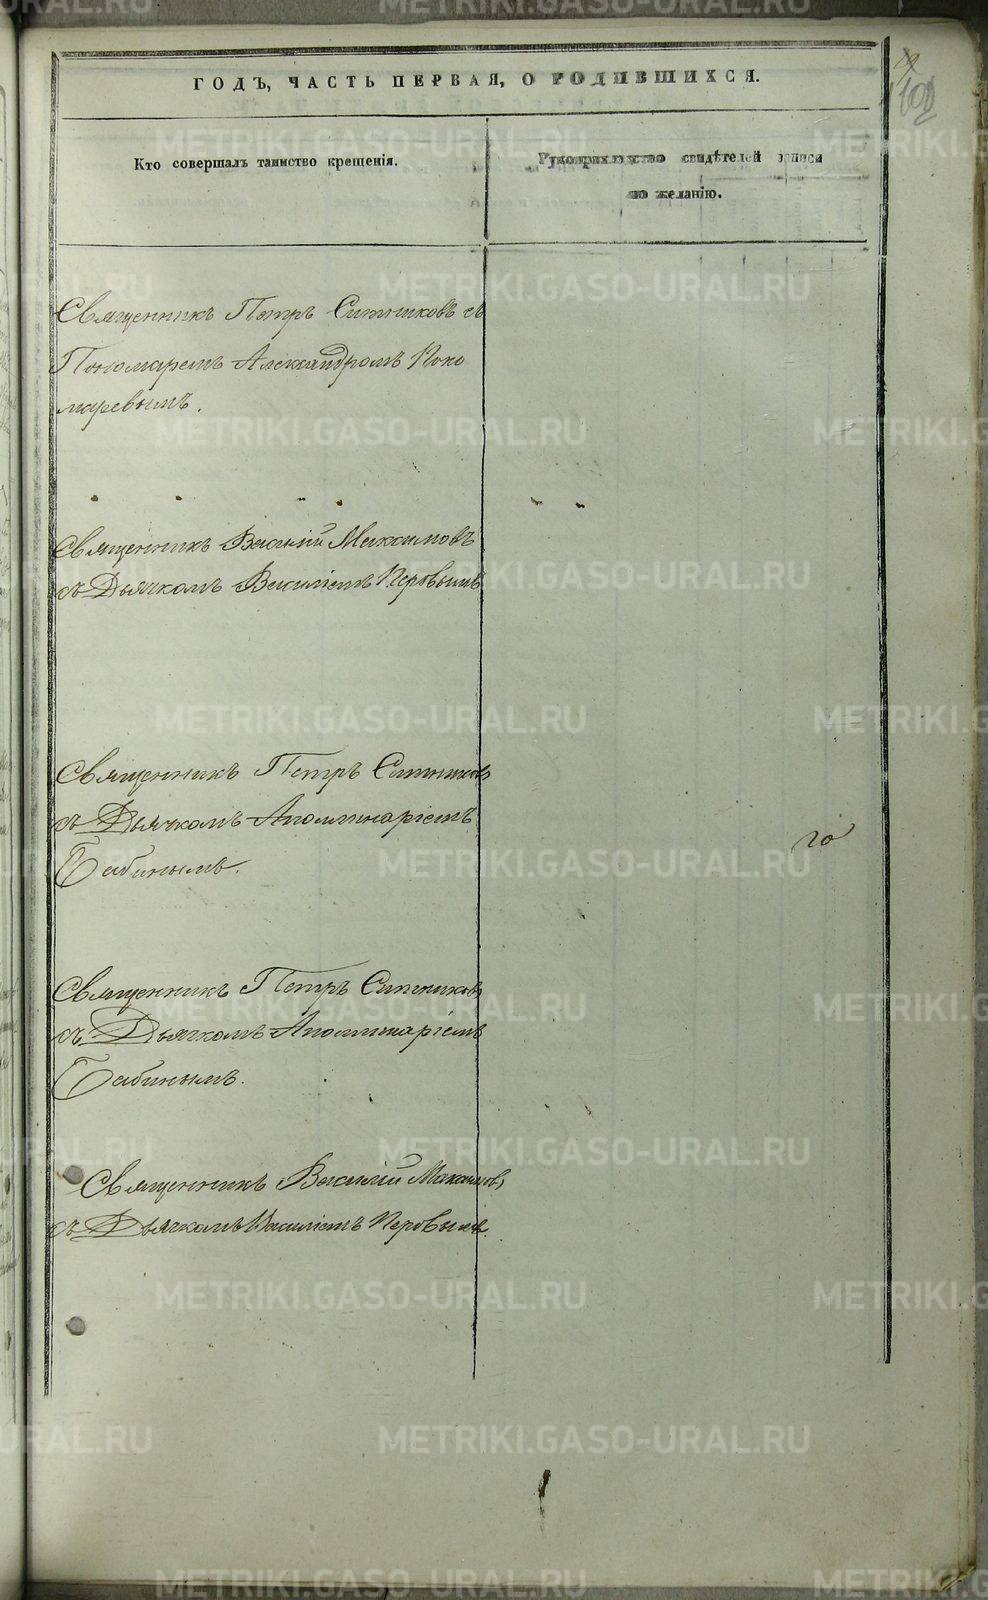 ГОДЪ, ЧАСТЬ ПЕРВАЯ, О РОДИВШИХСЯ.
102
Кто совершалъ таинство крещенія.
Рукоприкладство свидѣтелей записи
по желанію.
Священникъ Петръ Ситниковъ съ
Пономаремъ Александромъ Поно
маревымъ.
Священникъ Василій Максимовъ
съ Дьячкомъ Василіемъ Перовымъ
Священникъ Петръ Ситниковъ
съ Дьячкомъ Аполлинаріемъ
Бабинымъ.
го
Священникъ Петръ Ситниковъ
съ Дьячкомъ Аполлинаріемъ
Бабинымъ.
Священникъ Василій Максимовъ
съ Дьячкомъ Василіемъ Перовымъ.
METRIKI.GASO-URAL.RU